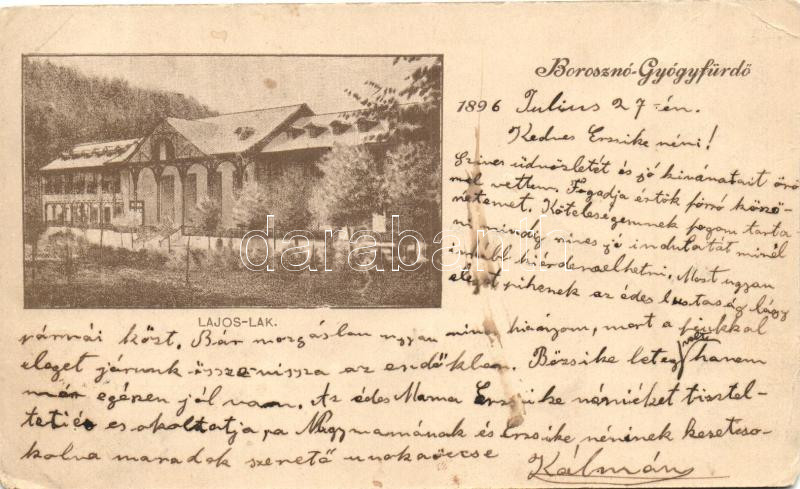 Borosznó-Gyógyfürdő
1896 Julius 27-én.
Kedves Erzsike néni!
Szives üdvözletét és jó kivánatait öröm
mel vettem. Fogadja értök forró köszö-
netemet. Kötelességemnek fogom tarta
ni mindig nines jó indulatát minél
inkább kiérdemelhetni. Most ugyan
eleget pihenek az édes lustaság lágy
LAJOS-LAK.
párnái közt. Bár mozgásban ugyan nincs hiányom, mert a fiukkal
eleget járunk összevissza az erdőkben. Bözsike beteg volt hanem
már egészen jól van. Az édes Mama Erzsike néniéket tisztel-
teti és csokoltatja, a Nagymamának és Erzsike néninek kezeitcso-
kolva maradok szerető unokaöcscse
Kálmán
darabanth